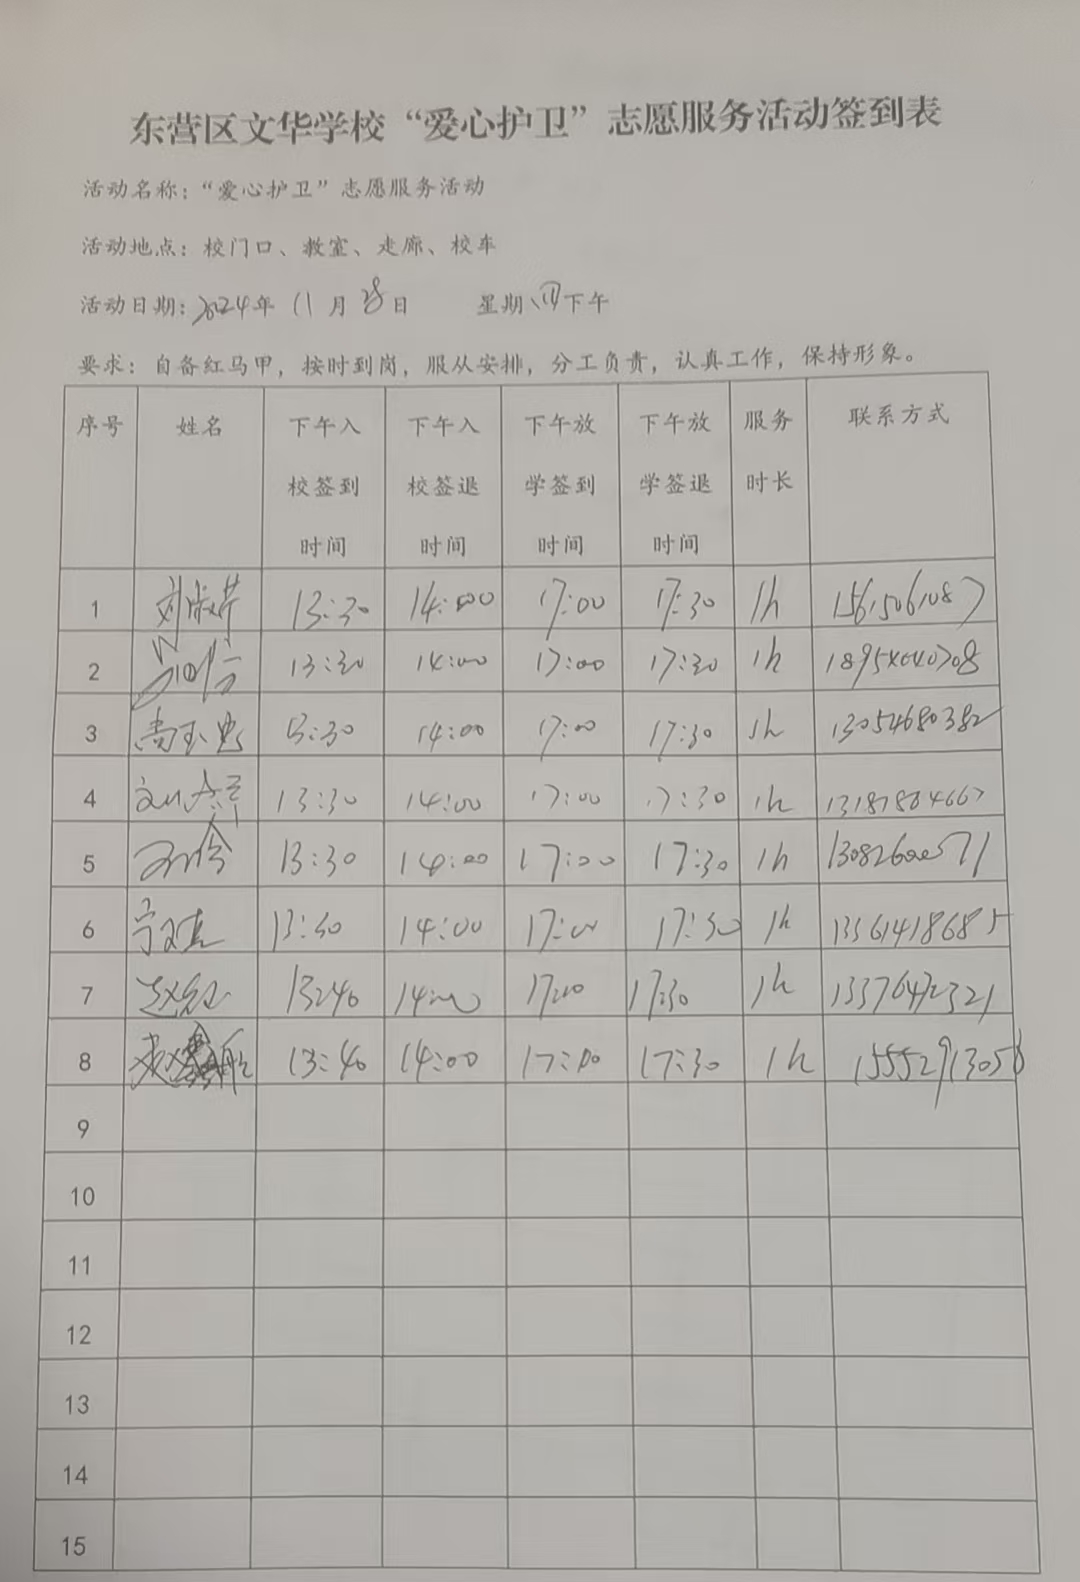 东营区文华学校“爱心护卫”志愿服务活动签到表
活动名称：“爱心护卫”志愿服务活动
活动地点：校门口、教室、走廊、校车
活动日期：2024年 11月 28日 星期 四下午
要求：自备红马甲，按时到岗，服从安排，分工负责，认真工作，保持形象。
序号 姓名 下午入校签到时间 下午入校签退时间 下午放学签到时间 下午放学签退时间 服务时长 联系方式
1 刘淑芹 13:30 14:00 17:00 17:30 1h 15615061087
2 13:30 14:00 17:00 17:30 1h
3 13:30 14:00 17:00 17:30 1h 13054680382
4 13:30 14:00 17:00 17:30 1h 13181884667
5 13:30 14:00 17:00 17:30 1h
6 13:30 14:00 17:00 17:30 1h 13361418685
7 赵红 13:40 14:00 17:00 17:30 1h 13376472321
8 13:40 14:00 17:00 17:30 1h 15552913058
9
10
11
12
13
14
15